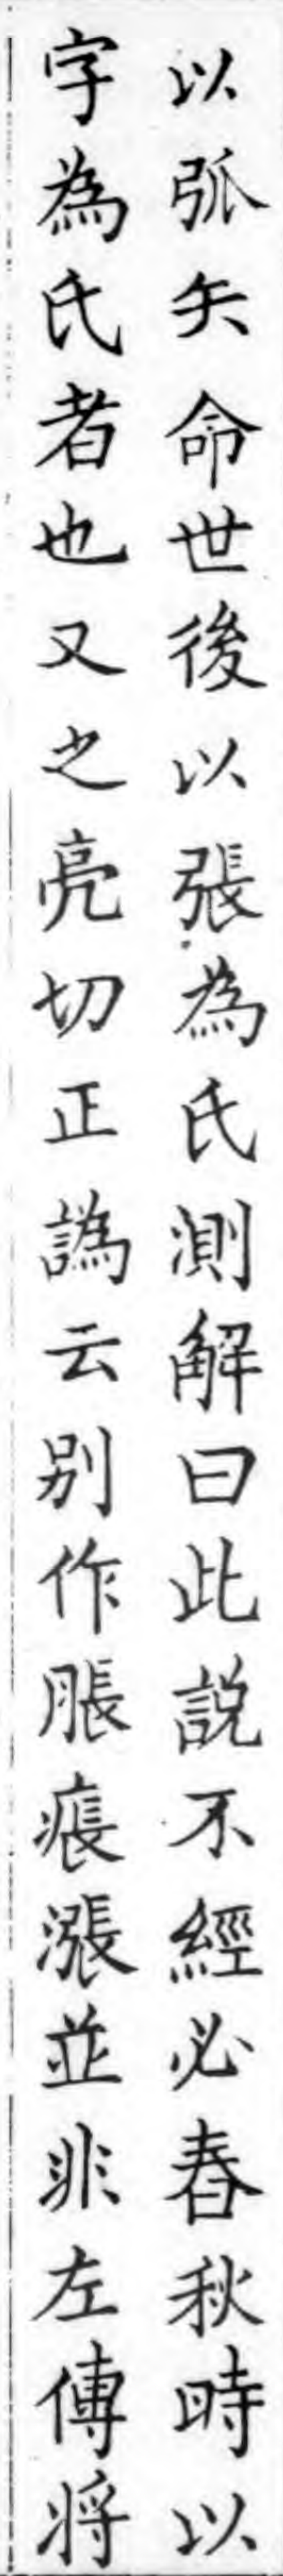 以弧矢命世後以張為氏測解曰此説不經必春秋時以
字為氏者也又之亮切正譌云别作脹痮漲並非左傳将